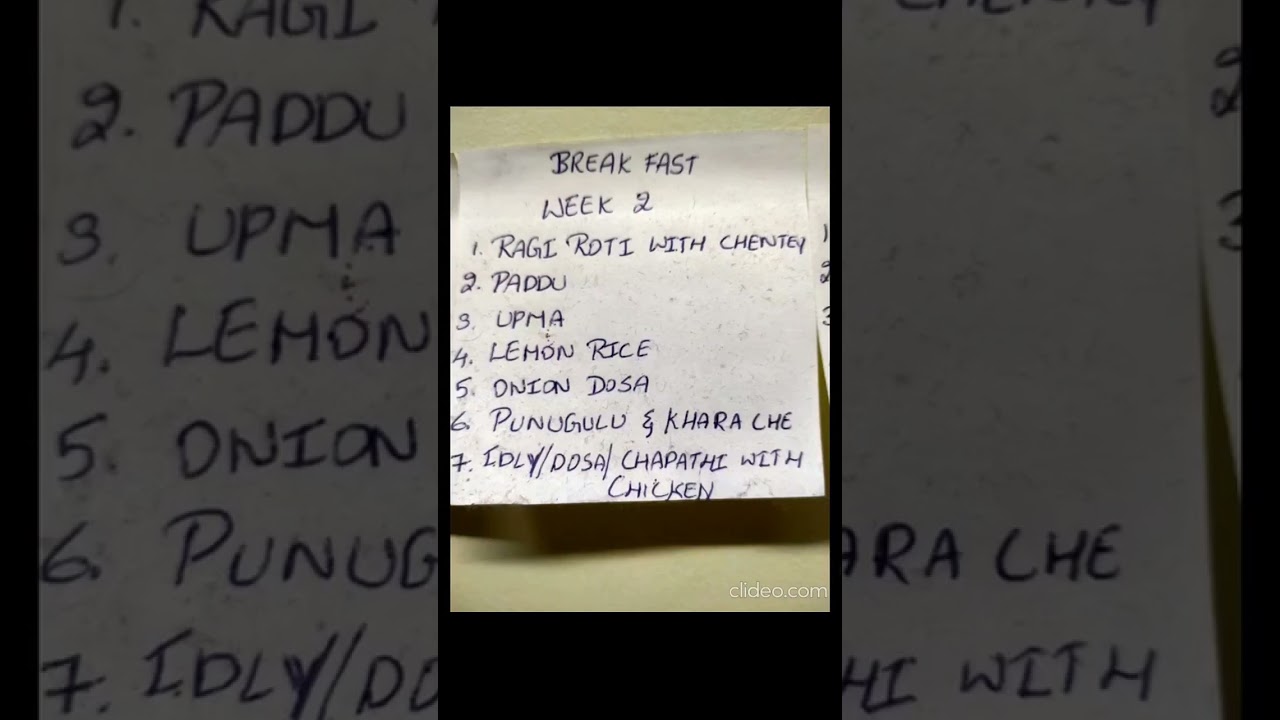 BREAK FAST
WEEK 2
1. RAGI ROTI WITH CHENTEY
2. PADDU
3. UPMA
4. LEMON RICE
5. ONION DOSA
6. PUNUGULU & KHARA CHE
7. IDLY/DOSA/ CHAPATHI WITH
CHICKEN
1
2
3
clideo.com